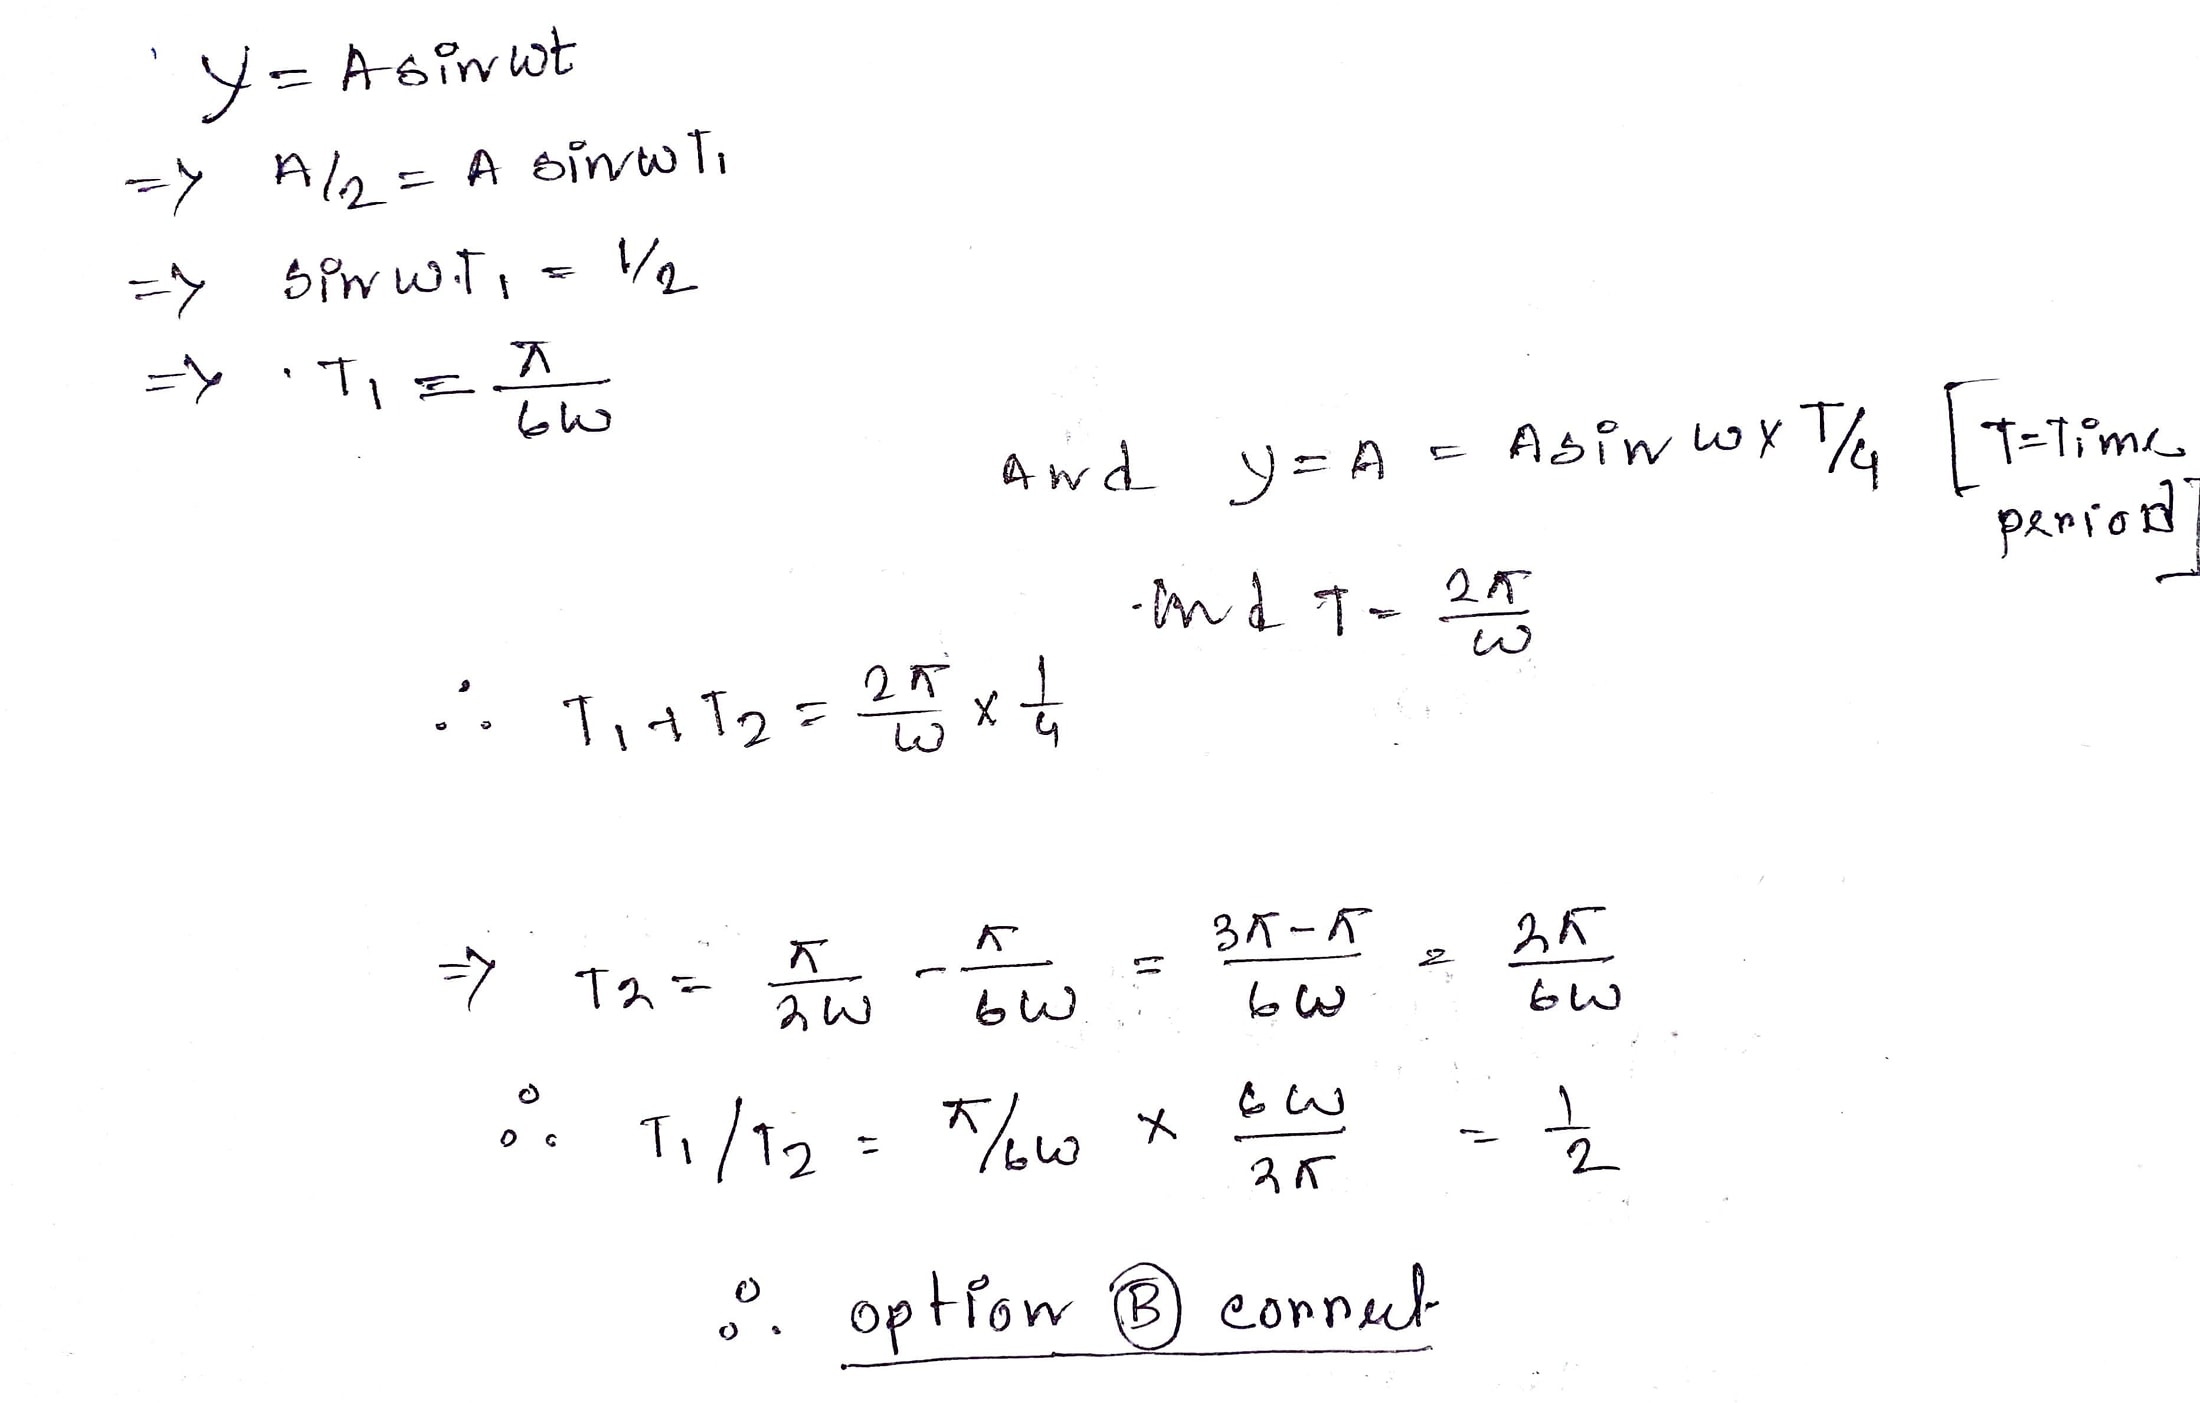 y = A sin ωt
=> A/2 = A sin ωT₁
=> sin ω.T₁ = 1/2
=> T₁ = π/6ω
And y = A = A sin ω x T/4 [T = Time period]
and T = 2π/ω
∴ T₁ + T₂ = 2π/ω x 1/4
=> T2 = π/2ω - π/6ω = 3π-π/6ω = 2π/6ω
∴ T₁/T₂ = π/6ω x 6ω/2π = 1/2
∴ option Ⓑ correct